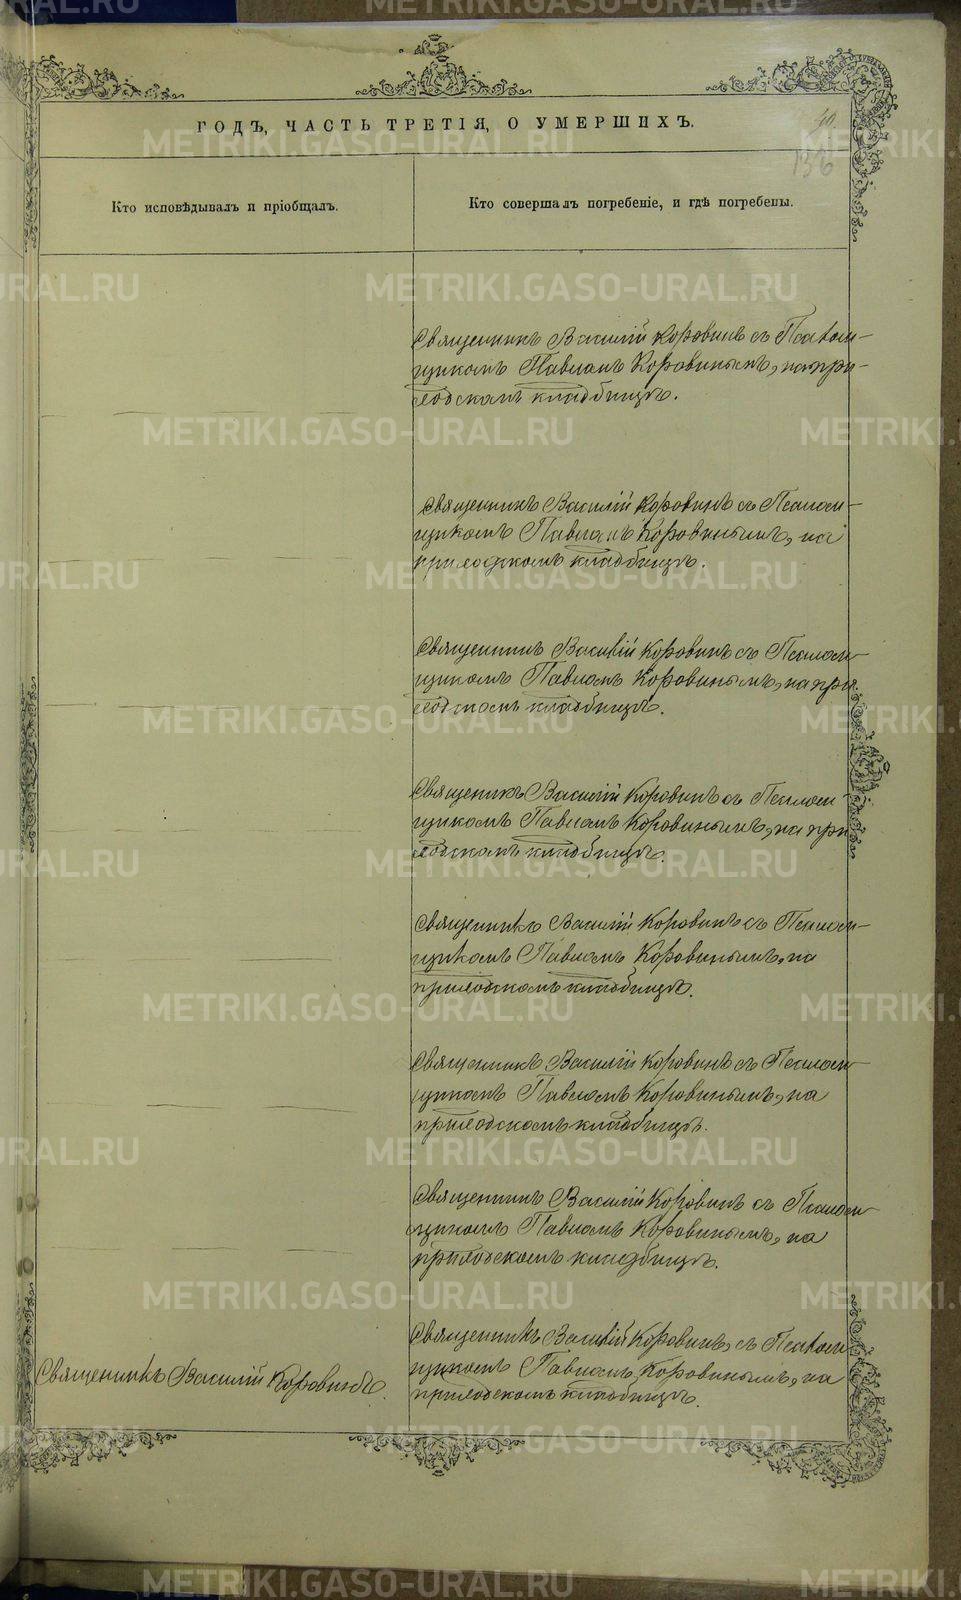 ГОДЪ, ЧАСТЬ ТРЕТІЯ, О УМЕРШИХЪ.
136
Кто исповѣдывалъ и пріобщалъ.
Кто совершалъ погребеніе, и гдѣ погребены.
Священникъ Василій Коровинъ съ Псалом-
щикомъ Павломъ Коровинымъ, на при-
ходскомъ кладбищѣ.
Священникъ Василій Коровинъ съ Псалом-
щикомъ Павломъ Коровинымъ, на
приходскомъ кладбищѣ.
Священникъ Василій Коровинъ съ Псалом-
щикомъ Павломъ Коровинымъ, на при
ходскомъ кладбищѣ.
Священикъ Василій Коровинъ съ Псалом
щикомъ Павломъ Коровинымъ, на при
ходскомъ кладбищѣ.
Священникъ Василій Коровинъ съ Псалом-
щикомъ Павломъ Коровинымъ, на
приходскомъ кладбищѣ.
Священникъ Василій Коровинъ съ Псалом
щикомъ Павломъ Коровинымъ, на
приходскомъ кладбищѣ.
Священникъ Василій Коровинъ съ Псалом
щикомъ Павломъ Коровинымъ, на
приходскомъ кладбищѣ.
Священникъ Василій Коровинъ.
Священникъ Василій Коровинъ, съ Псалом
щикомъ Павломъ Коровинымъ, на
приходскомъ кладбищѣ.
METRIKI.GASO-URAL.RU